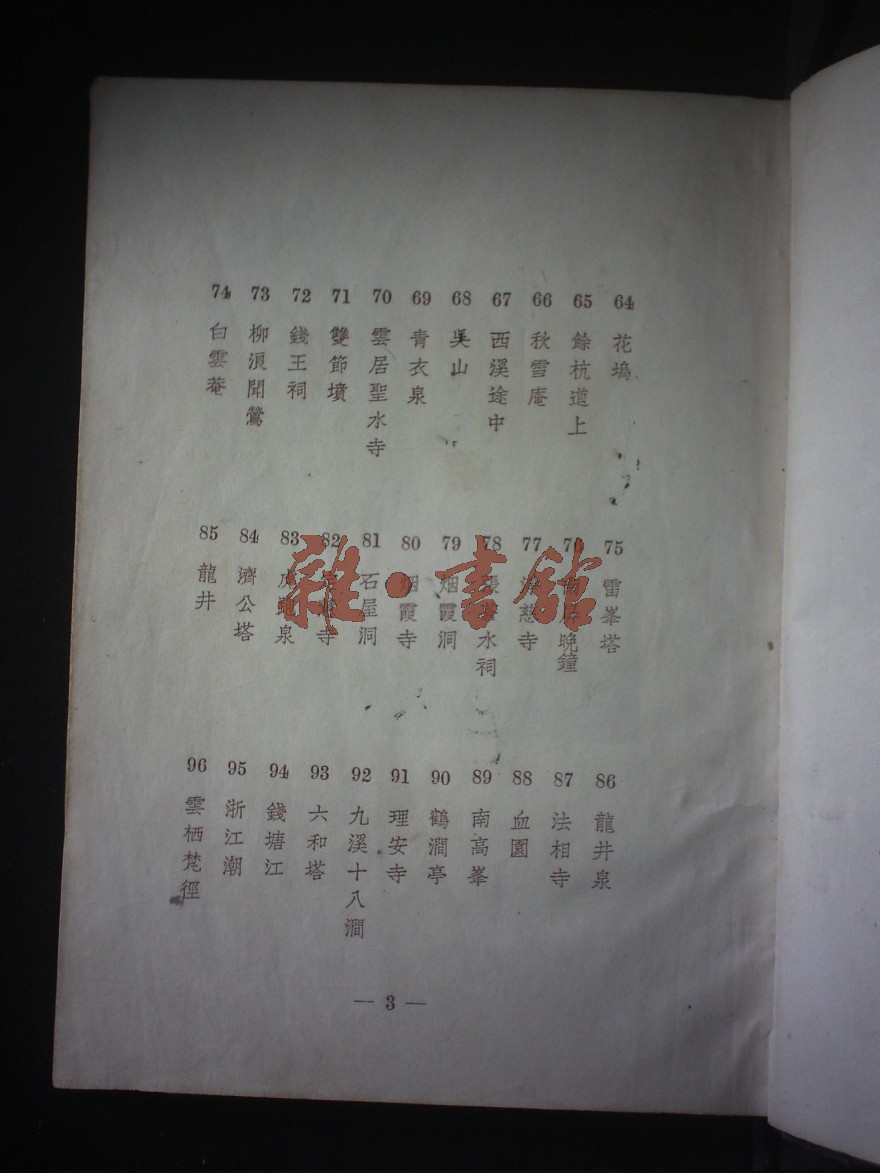 64 花塢
65 餘杭道上
66 秋雪庵
67 西溪途中
68 吳山
69 青衣泉
70 雲居聖水寺
71 雙節墳
72 錢王祠
73 柳浪聞鶯
74 白雲菴
75 雷峯塔
76 屏晚鐘
77 慈寺
78 水祠
79 烟霞洞
80 烟霞寺
81 石屋洞
82 寺
83 虎跑泉
84 濟公塔
85 龍井
86 龍井泉
87 法相寺
88 血園
89 南高峯
90 鶴澗亭
91 理安寺
92 九溪十八澗
93 六和塔
94 錢塘江
95 浙江潮
96 雲栖梵徑
— 3 —
雜·書館